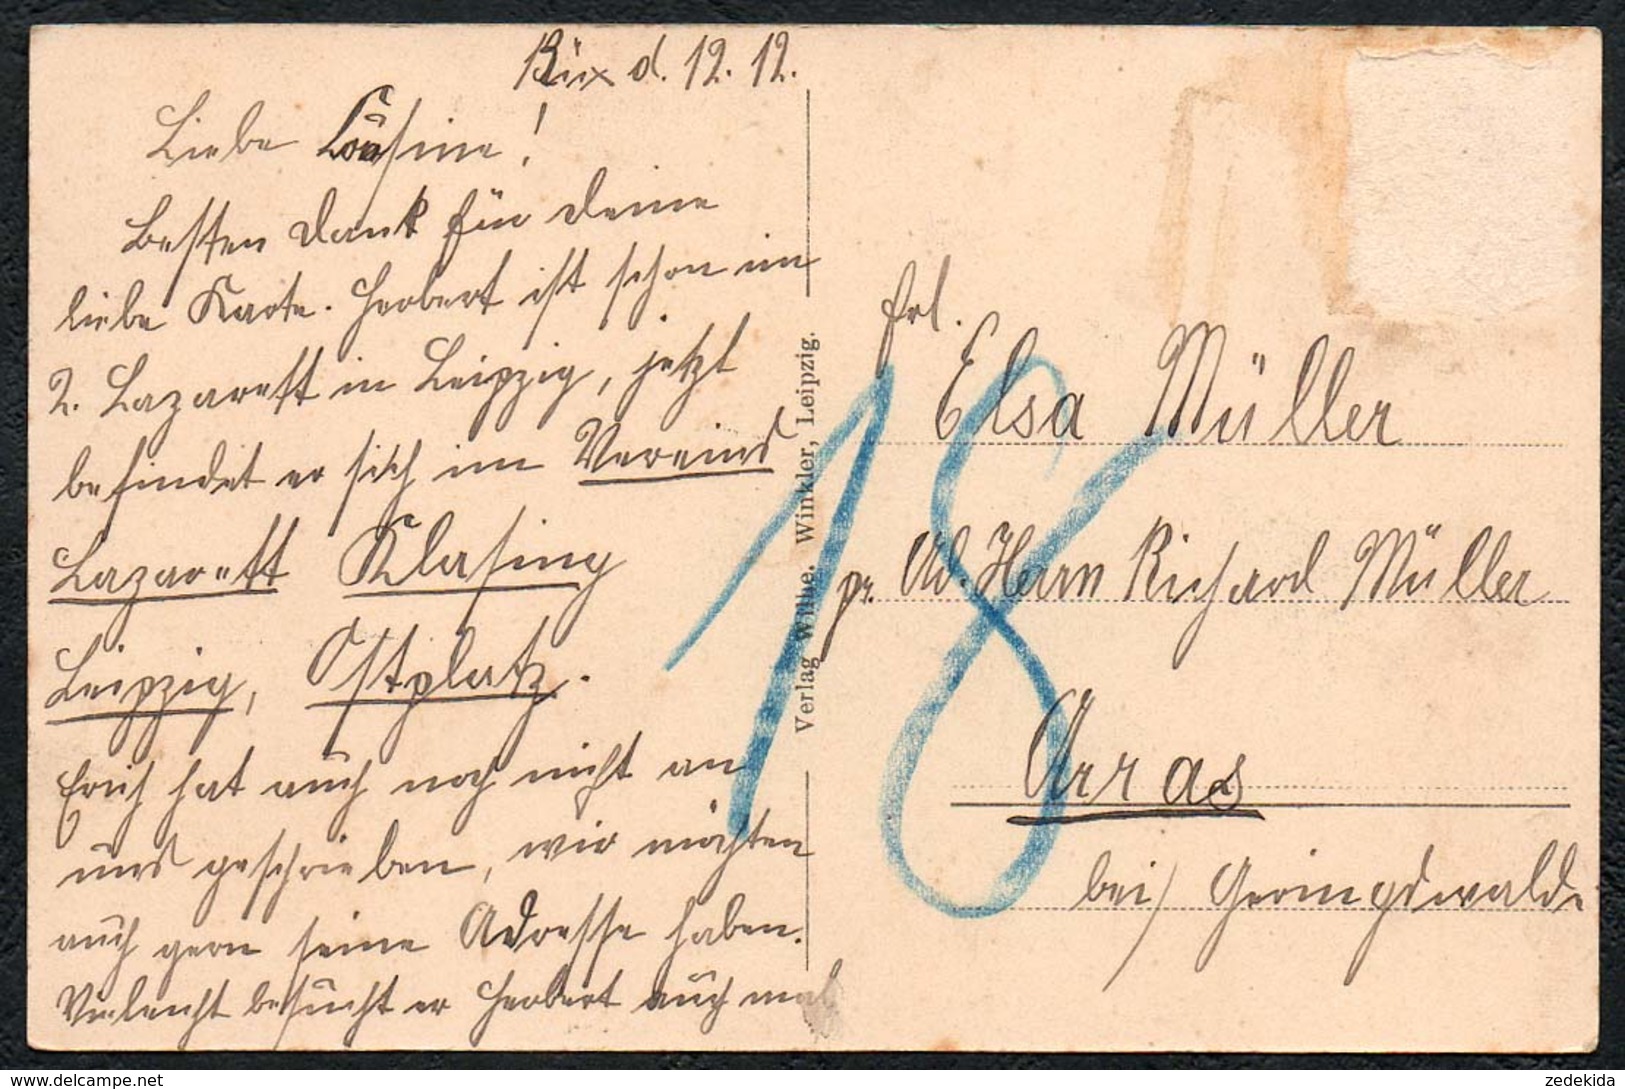 d. 12. 12.
Liebe Cousine!
Besten Dank für Deine
liebe Karte. Herbert ist schon im
2. Lazarett in Leipzig, jetzt
befindet er sich im Vereins
Lazarett Klasing
Leipzig, Ostplatz.
Erich hat auch noch nicht an
uns geschrieben, wir möchten
auch gern seine Adresse haben.
Vieleicht besucht er Herbert auch mal
Verlag Wilhe. Winkler, Leipzig.
18
Frl.
Elsa Müller
pr. Ad. Herrn Richard Müller
Arras
bei Geringswalde
zedekida